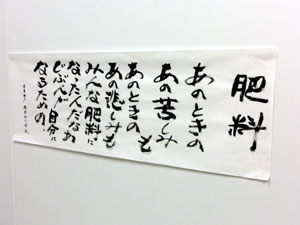 肥料
あのときの
あの苦しみも
あのときの
あの悲しみも
みんな肥料に
なったんだなあ
じぶんが自分に
なるための